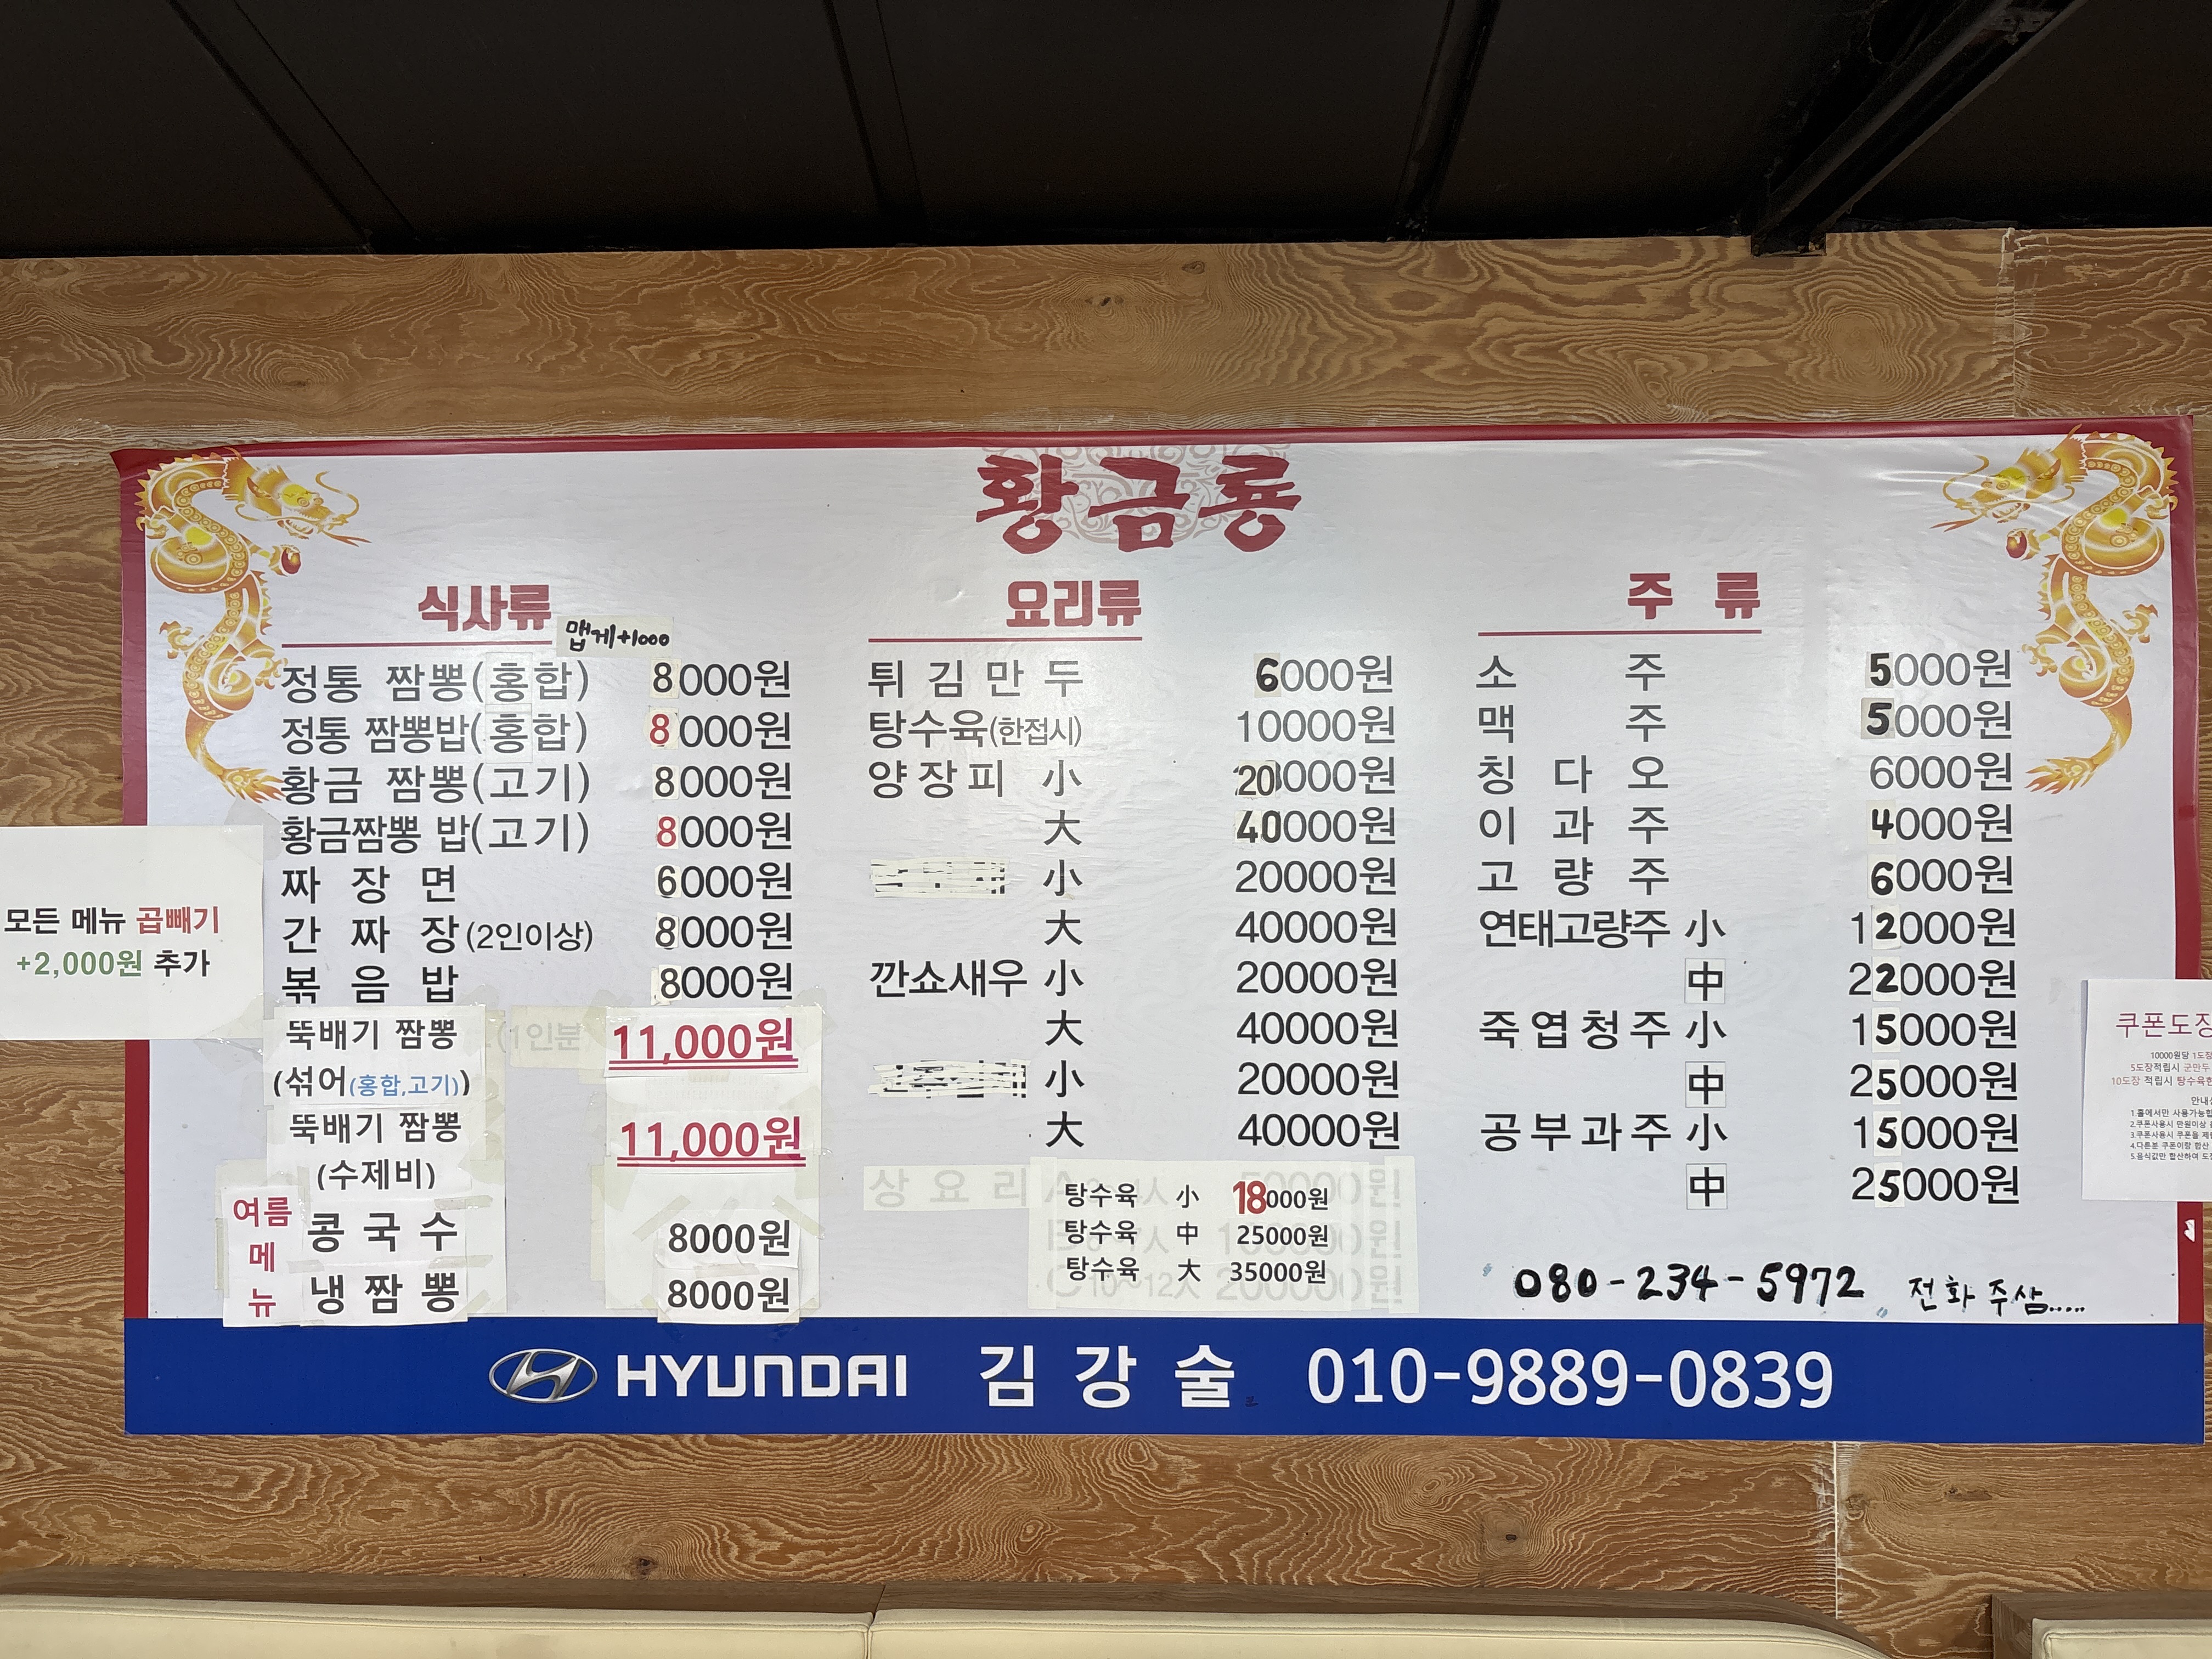 황금룡
식사류 맵게+1000
정통 짬뽕(홍합) 8000원
정통 짬뽕밥(홍합) 8000원
황금 짬뽕(고기) 8000원
황금짬뽕 밥(고기) 8000원
짜장면 6000원
간짜장(2인이상) 8000원
볶음밥 8000원
뚝배기 짬뽕 (1인분 11,000원
(섞어(홍합,고기))
뚝배기 짬뽕 11,000원
(수제비)
여름
메
뉴
콩국수 8000원
냉짬뽕 8000원
모든 메뉴 곱빼기
+2,000원 추가
요리류
튀김만두 6000원
탕수육(한접시) 10000원
양장피 小 20000원
大 40000원
小 20000원
大 40000원
깐쇼새우 小 20000원
大 40000원
小 20000원
大 40000원
상요리
탕수육 小 18000원
탕수육 中 25000원
탕수육 大 35000원
주류
소주 5000원
맥주 5000원
칭다오 6000원
이과주 4000원
고량주 6000원
연태고량주 小 12000원
中 22000원
죽엽청주 小 15000원
中 25000원
공부과주 小 15000원
中 25000원
080-234-5972 전화 주삼.....
쿠폰도장
10000원당 1도장
5도장적립시 군만두
10도장 적립시 탕수육한
1.홀에서만 사용가능합
2.쿠폰사용시 만원이상
3.쿠폰사용시 쿠폰을
4.다른분 쿠폰이랑 합산
5.음식값만 합산하여
HYUNDAI 김강술 010-9889-0839